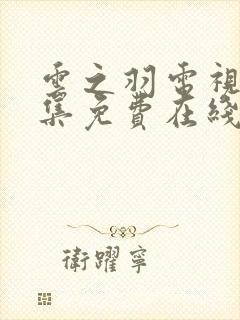 雲之羽電視
集免費在綫
衛躍寧